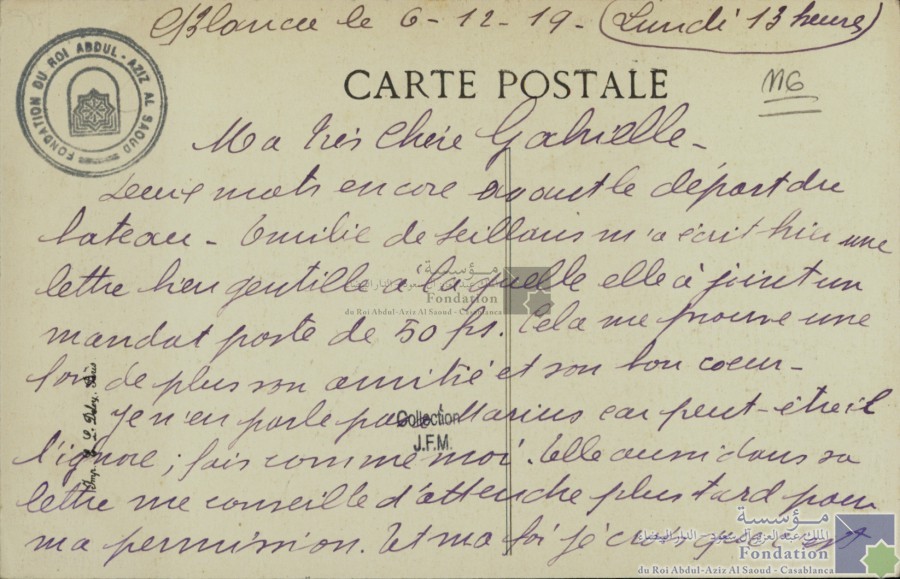 CBlanca le 6-12-19- (Lundi 13 heures)
FONDATION DU ROI ABDUL-AZIZ AL SAOUD
CARTE POSTALE
116
Ma très chère Gabrielle-
Deux mots encore avant le départ du
bateau- Emilie de Seillans m'a écrit hier une
lettre bien gentille a laquelle elle à joint un
mandat poste de 50 frs. Cela me prouve une
fois de plus son amitié et son bon coeur-
Je n'en parle pas à Marius car peut-être il
l'ignore; fais comme moi. Elle aussi dans sa
lettre me conseille d'attendre plus tard pour
ma permission. Et ma foi je crois que c'est
Imp. E. L. Deley, Paris
Collection
J.F.M.
مؤسسة
الملك عبد العزيز آل سعود - الدار البيضاء
Fondation
du Roi Abdul-Aziz Al Saoud - Casablanca
مؤسسة
الملك عبد العزيز آل سعود - الدار البيضاء
Fondation
du Roi Abdul-Aziz Al Saoud - Casablanca